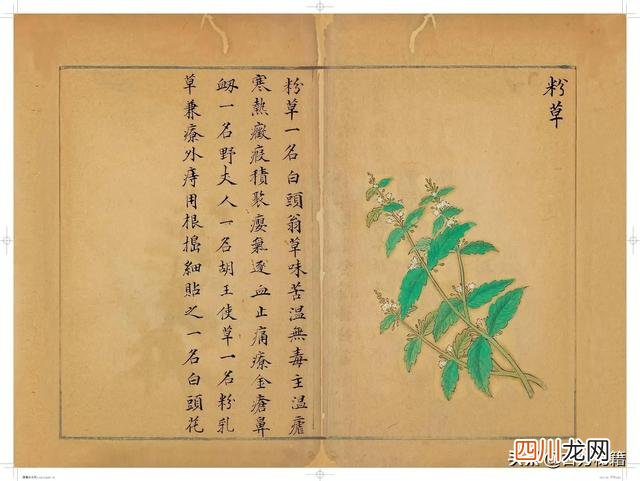 粉草
粉草一名白頭翁草味苦溫無毒主溫瘧
寒熱癥瘕積聚癭氣逐血止痛療金瘡鼻
衂一名野丈人一名胡王使草一名粉乳
草兼療外痔用根搗細貼之一名白頭花
四川龙网